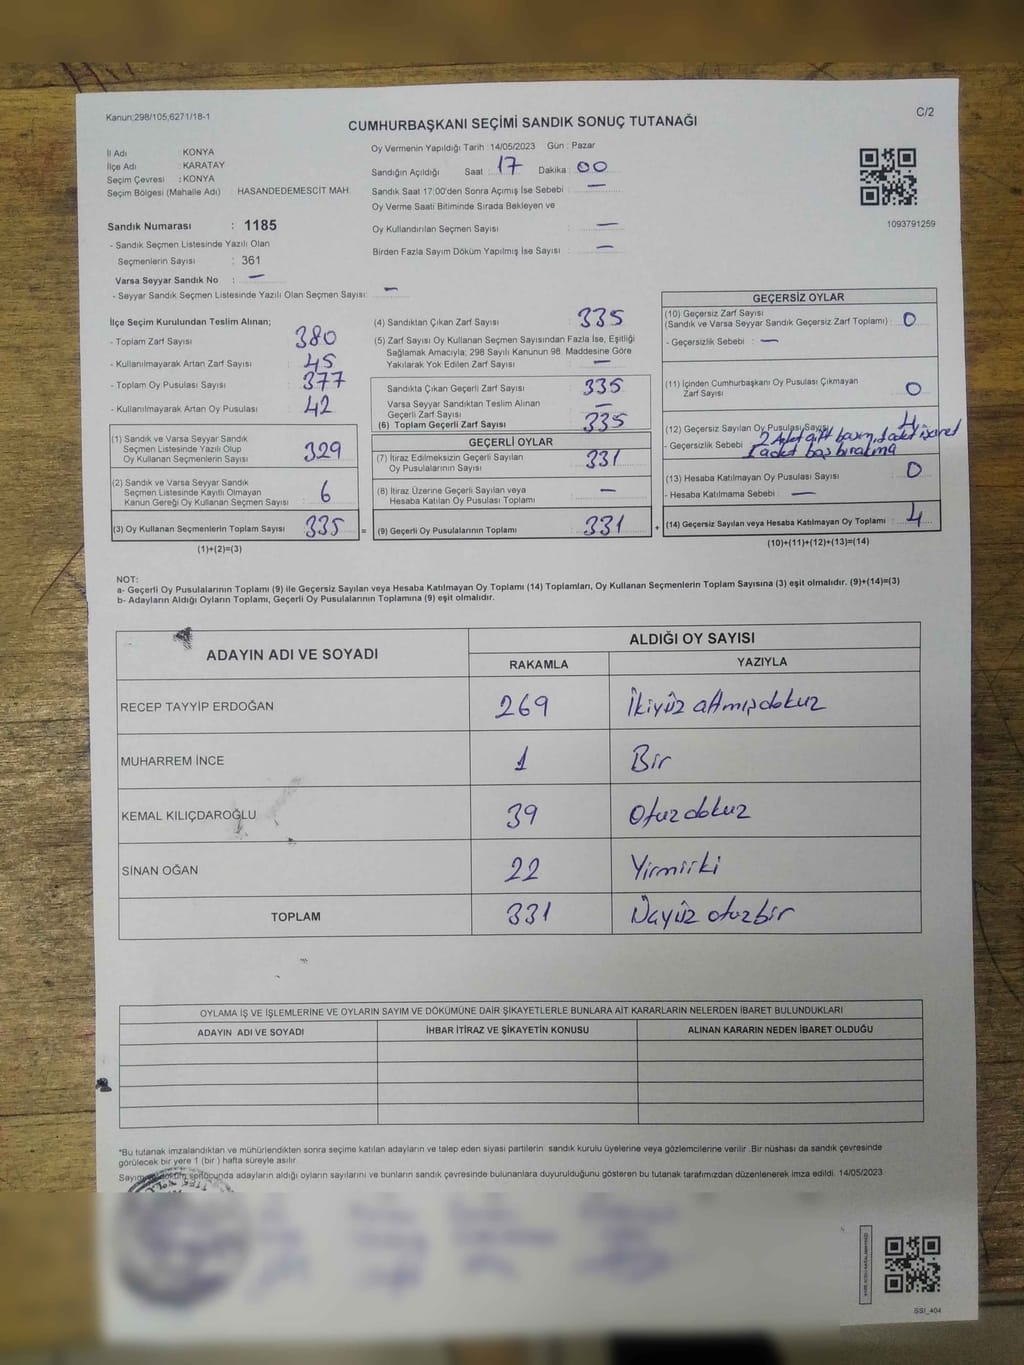 Kanun;298/105;6271/18-1
C/2
CUMHURBAŞKANI SEÇİMİ SANDIK SONUÇ TUTANAĞI
İl Adı : KONYA
İlçe Adı : KARATAY
Seçim Çevresi : KONYA
Seçim Bölgesi (Mahalle Adı) : HASANDEDEMESCİT MAH.
Sandık Numarası : 1185
- Sandık Seçmen Listesinde Yazılı Olan
Seçmenlerin Sayısı : 361
Varsa Seyyar Sandık No : —
- Seyyar Sandık Seçmen Listesinde Yazılı Olan Seçmen Sayısı: —
Oy Vermenin Yapıldığı Tarih : 14/05/2023 Gün : Pazar
Sandığın Açıldığı Saat : 17 Dakika : 00
Sandık Saat 17:00'den Sonra Açımış İse Sebebi : —
Oy Verme Saati Bitiminde Sırada Bekleyen ve
Oy Kullandırılan Seçmen Sayısı : —
Birden Fazla Sayım Döküm Yapılmış İse Sayısı : —
1093791259
İlçe Seçim Kurulundan Teslim Alınan;
- Toplam Zarf Sayısı : 380
- Kullanılmayarak Artan Zarf Sayısı : 45
- Toplam Oy Pusulası Sayısı : 377
- Kullanılmayarak Artan Oy Pusulası : 42
(1) Sandık ve Varsa Seyyar Sandık
Seçmen Listesinde Yazılı Olup
Oy Kullanan Seçmenlerin Sayısı : 329
(2) Sandık ve Varsa Seyyar Sandık
Seçmen Listesinde Kayıtlı Olmayan
Kanun Gereği Oy Kullanan Seçmen Sayısı : 6
(3) Oy Kullanan Seçmenlerin Toplam Sayısı : 335 =
(1)+(2)=(3)
(4) Sandıktan Çıkan Zarf Sayısı : 335
(5) Zarf Sayısı Oy Kullanan Seçmen Sayısından Fazla İse, Eşitliği
Sağlamak Amacıyla; 298 Sayılı Kanunun 98. Maddesine Göre
Yakılarak Yok Edilen Zarf Sayısı : —
Sandıkta Çıkan Geçerli Zarf Sayısı : 335
Varsa Seyyar Sandıktan Teslim Alınan
Geçerli Zarf Sayısı : —
(6) Toplam Geçerli Zarf Sayısı : 335
GEÇERLİ OYLAR
(7) İtiraz Edilmeksizin Geçerli Sayılan
Oy Pusulalarının Sayısı : 331
(8) İtiraz Üzerine Geçerli Sayılan veya
Hesaba Katılan Oy Pusulası Toplamı : —
(9) Geçerli Oy Pusulalarının Toplamı : 331 +
GEÇERSİZ OYLAR
(10) Geçersiz Zarf Sayısı
(Sandık ve Varsa Seyyar Sandık Geçersiz Zarf Toplamı) : 0
- Geçersizlik Sebebi : —
(11) İçinden Cumhurbaşkanı Oy Pusulası Çıkmayan
Zarf Sayısı : 0
(12) Geçersiz Sayılan Oy Pusulası Sayısı : 4
- Geçersizlik Sebebi : 2 Adet çift basım, 1 adet işaret
1 adet boş bırakma
(13) Hesaba Katılmayan Oy Pusulası Sayısı : 0
- Hesaba Katılmama Sebebi : —
(14) Geçersiz Sayılan veya Hesaba Katılmayan Oy Toplamı : 4
(10)+(11)+(12)+(13)=(14)
NOT:
a- Geçerli Oy Pusulalarının Toplamı (9) ile Geçersiz Sayılan veya Hesaba Katılmayan Oy Toplamı (14) Toplamları, Oy Kullanan Seçmenlerin Toplam Sayısına (3) eşit olmalıdır. (9)+(14)=(3)
b- Adayların Aldığı Oyların Toplamı, Geçerli Oy Pusulalarının Toplamına (9) eşit olmalıdır.
ADAYIN ADI VE SOYADI
ALDIĞI OY SAYISI
RAKAMLA YAZIYLA
RECEP TAYYİP ERDOĞAN 269 İkiyüz altmışdokuz
MUHARREM İNCE 1 Bir
KEMAL KILIÇDAROĞLU 39 Otuzdokuz
SİNAN OĞAN 22 Yirmiiki
TOPLAM 331 Üçyüz otuzbir
OYLAMA İŞ VE İŞLEMLERİNE VE OYLARIN SAYIM VE DÖKÜMÜNE DAİR ŞİKAYETLERLE BUNLARA AİT KARARLARIN NELERDEN İBARET BULUNDUKLARI
ADAYIN ADI VE SOYADI İHBAR İTİRAZ VE ŞİKAYETİN KONUSU ALINAN KARARIN NEDEN İBARET OLDUĞU
*Bu tutanak imzalandıktan ve mühürlendikten sonra seçime katılan adayların ve talep eden siyasi partilerin sandık kurulu üyelerine veya gözlemcilerine verilir .Bir nüshası da sandık çevresinde
görülecek bir yere 1 (bir ) hafta süreyle asılır.
Sayım ve döküm sonucunda adayların aldığı oyların sayılarını ve bunların sandık çevresinde bulunanlara duyurulduğunu gösteren bu tutanak tarafımızdan düzenlenerek imza edildi. 14/05/2023
SSI_404